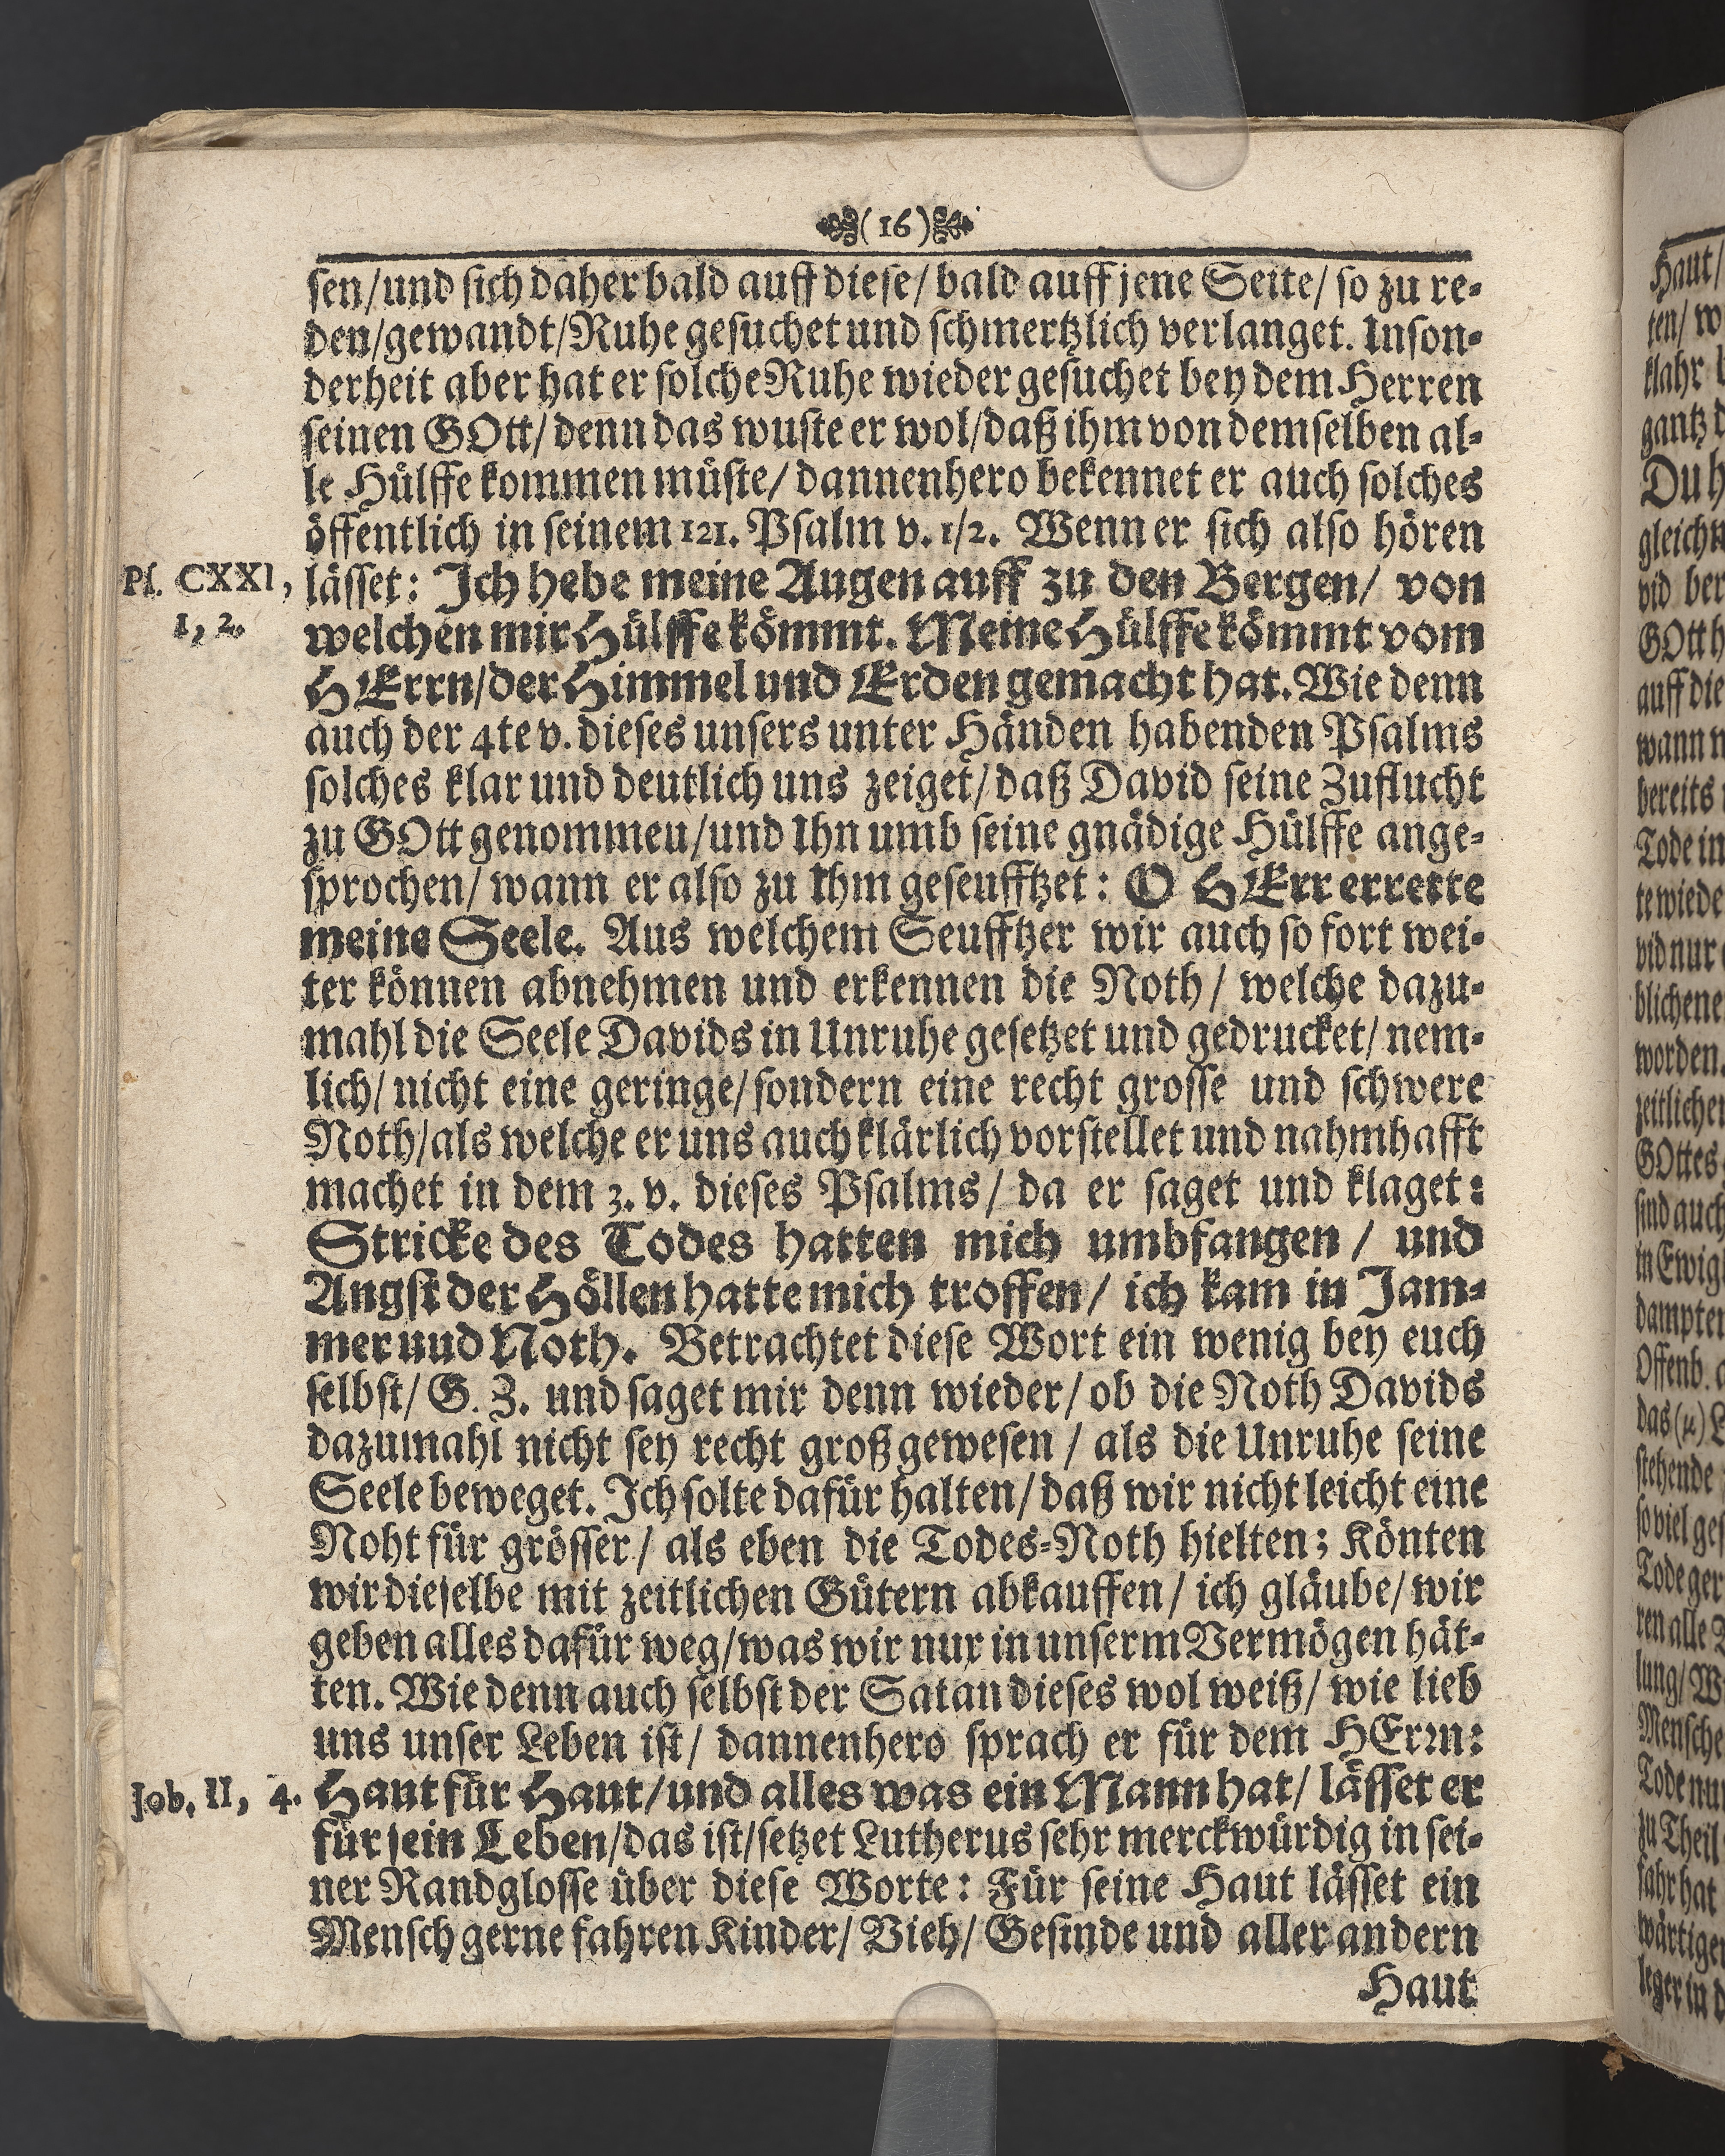 (16)
sen/und sich daher bald auff diese/ bald auff jene Seite/ so zu re-
den/gewandt/Ruhe gesuchet und schmertzlich verlanget. Inson-
derheit aber hat er solche Ruhe wieder gesuchet bey dem Herren
seinen GOtt/ denn das wuste er wol/daß ihm von demselben al-
le Hülffe kommen müste/ dannenhero bekennet er auch solches
öffentlich in seinem 121. Psalm v. 1/2. Wenn er sich also hören
Ps. CXXI, lässet: Ich hebe meine Augen auff zu den Bergen/ von
1, 2. welchen mir Hülffe kömmt. Meine Hülffe kömmt vom
HErrn/der Himmel und Erden gemacht hat. Wie denn
auch der 4te v. dieses unsers unter Händen habenden Psalms
solches klar und deutlich uns zeiget/ daß David seine Zuflucht
zu GOtt genommeu/und Ihn umb seine gnädige Hülffe ange-
sprochen/ wann er also zu Ihm geseufftzet: O HErr errette
meine Seele. Aus welchem Seufftzer wir auch so fort wei-
ter können abnehmen und erkennen die Noth/ welche dazu-
mahl die Seele Davids in Unruhe gesetzet und gedrucket/ nem-
lich/ nicht eine geringe/ sondern eine recht grosse und schwere
Noth/als welche er uns auch klärlich vorstellet und nahmhafft
machet in dem 3. v. dieses Psalms/ da er saget und klaget:
Stricke des Todes hatten mich umbfangen/ und
Angst der Höllen hatte mich troffen/ ich kam in Jam-
mer uud Noth. Betrachtet diese Wort ein wenig bey euch
selbst/ G. Z. und saget mir denn wieder/ ob die Noth Davids
dazumahl nicht sey recht groß gewesen / als die Unruhe seine
Seele beweget. Ich solte dafür halten/ daß wir nicht leicht eine
Noht für grösser/ als eben die Todes-Noth hielten; Könten
wir dieselbe mit zeitlichen Gütern abkauffen/ ich gläube/ wir
geben alles dafür weg/was wir nur in unserm Vermögen hät-
ten. Wie denn auch selbst der Satan dieses wol weiß/ wie lieb
uns unser Leben ist/ dannenhero sprach er für dem HErrn:
Job. II, 4. Haut für Haut/und alles was ein Mann hat/ lässet er
für sein Leben/das ist/setzet Lutherus sehr merckwürdig in sei-
ner Randglosse über diese Worte: Für seine Haut lässet ein
Mensch gerne fahren Kinder/ Vieh/ Gesinde und aller andern
Haut